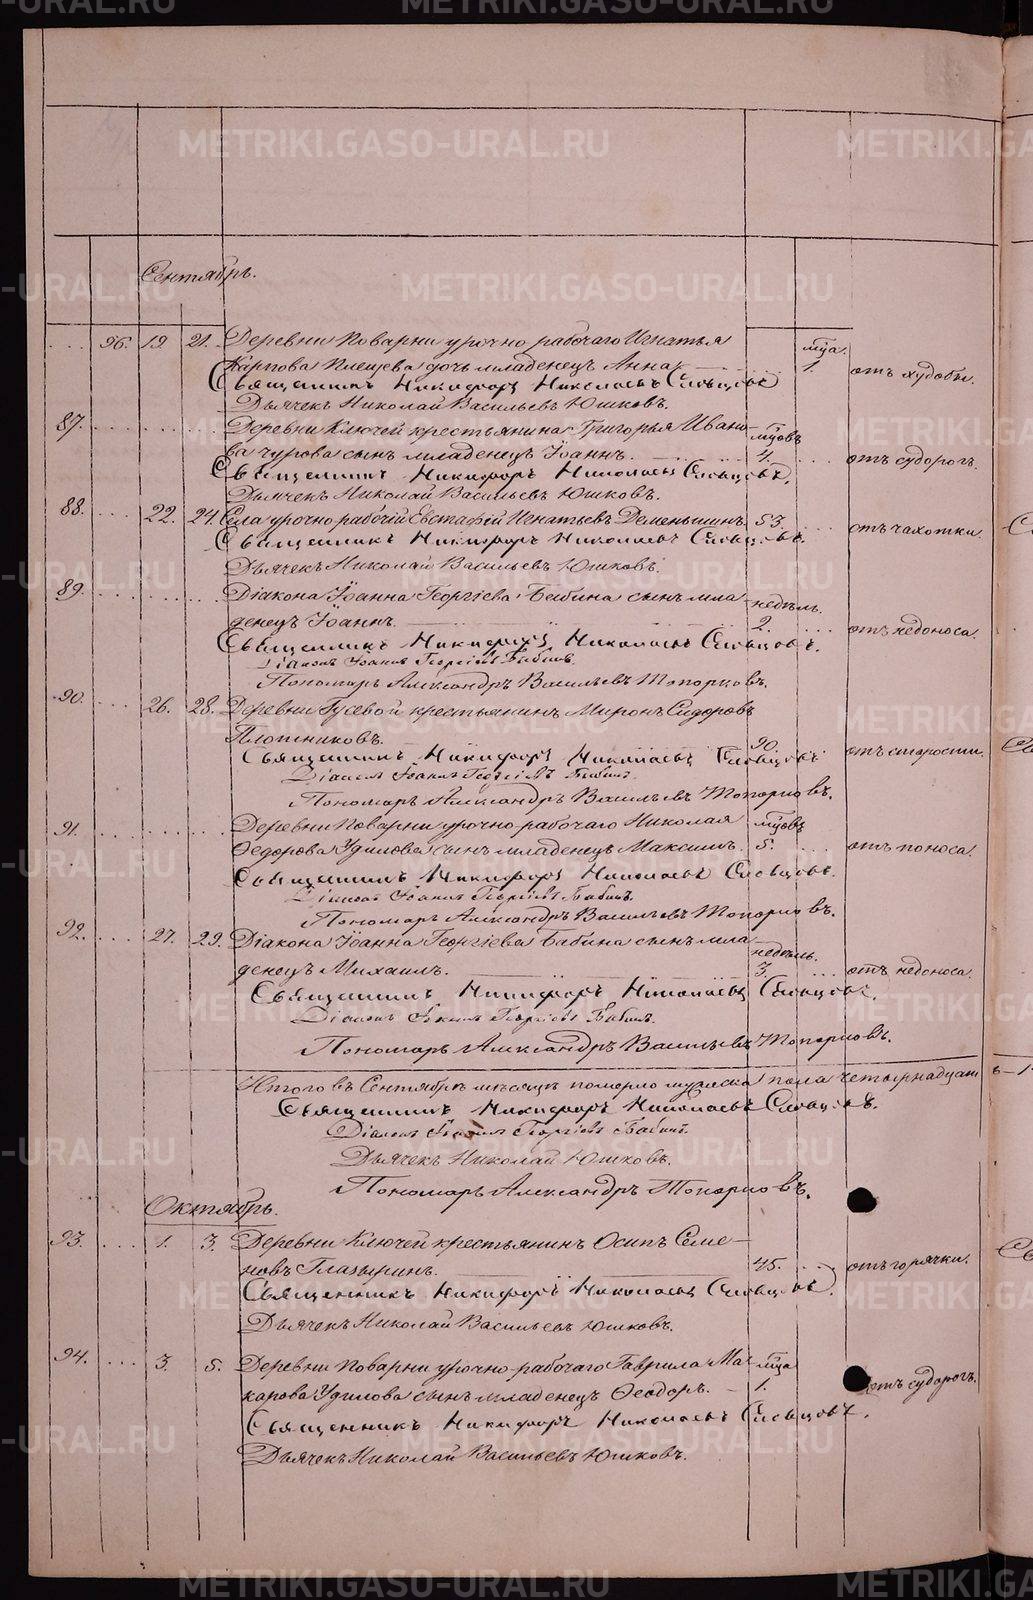 METRIKI.GASO-URAL.RU
Сентябрь.
96. 19. 21. Деревни Поварни урочно рабочаго Игнатья мца.
Карпова Плещева дочь младенецъ Анна 1. отъ худобы.
Священникъ Никифоръ Николаевъ Словцовъ
Дьячекъ Николай Васильевъ Юшковъ.
87. Деревни Ключей крестьянина Григорья Ивано- мцовъ
ва Чурова сынъ младенецъ Іоаннъ. 4. отъ судорогъ.
Священникъ Никифоръ Николаевъ Словцовъ.
Дьячекъ Николай Васильевъ Юшковъ.
88. 22. 24. Села урочно рабочій Евстафій Игнатьевъ Деменьшинъ 53. отъ чахотки.
Священникъ Никифоръ Николаевъ Словцовъ.
Дьячекъ Николай Васильевъ Юшковъ.
89. Діакона Іоанна Георгіева Бабина сынъ мла- недѣль.
денецъ Іоаннъ. 2. отъ недоноса.
Священникъ Никифоръ Николаевъ Словцовъ.
Діаконъ Іоаннъ Георгіевъ Бабинъ.
Пономарь Александръ Васильевъ Топорковъ.
90. 26. 28. Деревни Гусевой крестьянинъ Миронъ Сидоровъ
Плотниковъ. 90. отъ старости.
Священникъ Никифоръ Николаевъ Словцовъ
Діаконъ Іоаннъ Георгіевъ Бабинъ.
Пономарь Александръ Васильевъ Топорковъ.
91. Деревни Поварни урочно-рабочаго Николая мцовъ
Ѳедорова Удилова сынъ младенецъ Максимъ. 5. отъ поноса.
Священникъ Никифоръ Николаевъ Словцовъ.
Діаконъ Іоаннъ Георгіевъ Бабинъ.
Пономарь Александръ Васильевъ Топорковъ.
92. 27. 29. Діакона Іоанна Георгіева Бабина сынъ мла- недѣль.
денецъ Михаилъ. 3. отъ недоноса.
Священникъ Никифоръ Николаевъ Словцовъ.
Діаконъ Іоаннъ Георгіевъ Бабинъ.
Пономарь Александръ Васильевъ Топорковъ.
Итого въ Сентябрѣ мѣсяцѣ померло мужеска пола четырнадцать - 1
Священникъ Никифоръ Николаевъ Словцовъ.
Діаконъ Іоаннъ Георгіевъ Бабинъ.
Дьячекъ Николай Юшковъ.
Пономарь Александръ Топорковъ.
Октябрь.
93. 1. 3. Деревни Ключей крестьянинъ Осипъ Семе-
новъ Глазыринъ. 45. отъ горячки.
Священникъ Никифоръ Николаевъ Словцовъ.
Дьячекъ Николай Васильевъ Юшковъ.
94. 3. 5. Деревни Поварни урочно-рабочаго Гаврила Ма- мца
карова Удилова сынъ младенецъ Ѳеодоръ. 1. отъ судорогъ.
Священникъ Никифоръ Николаевъ Словцовъ.
Дьячекъ Николай Васильевъ Юшковъ.